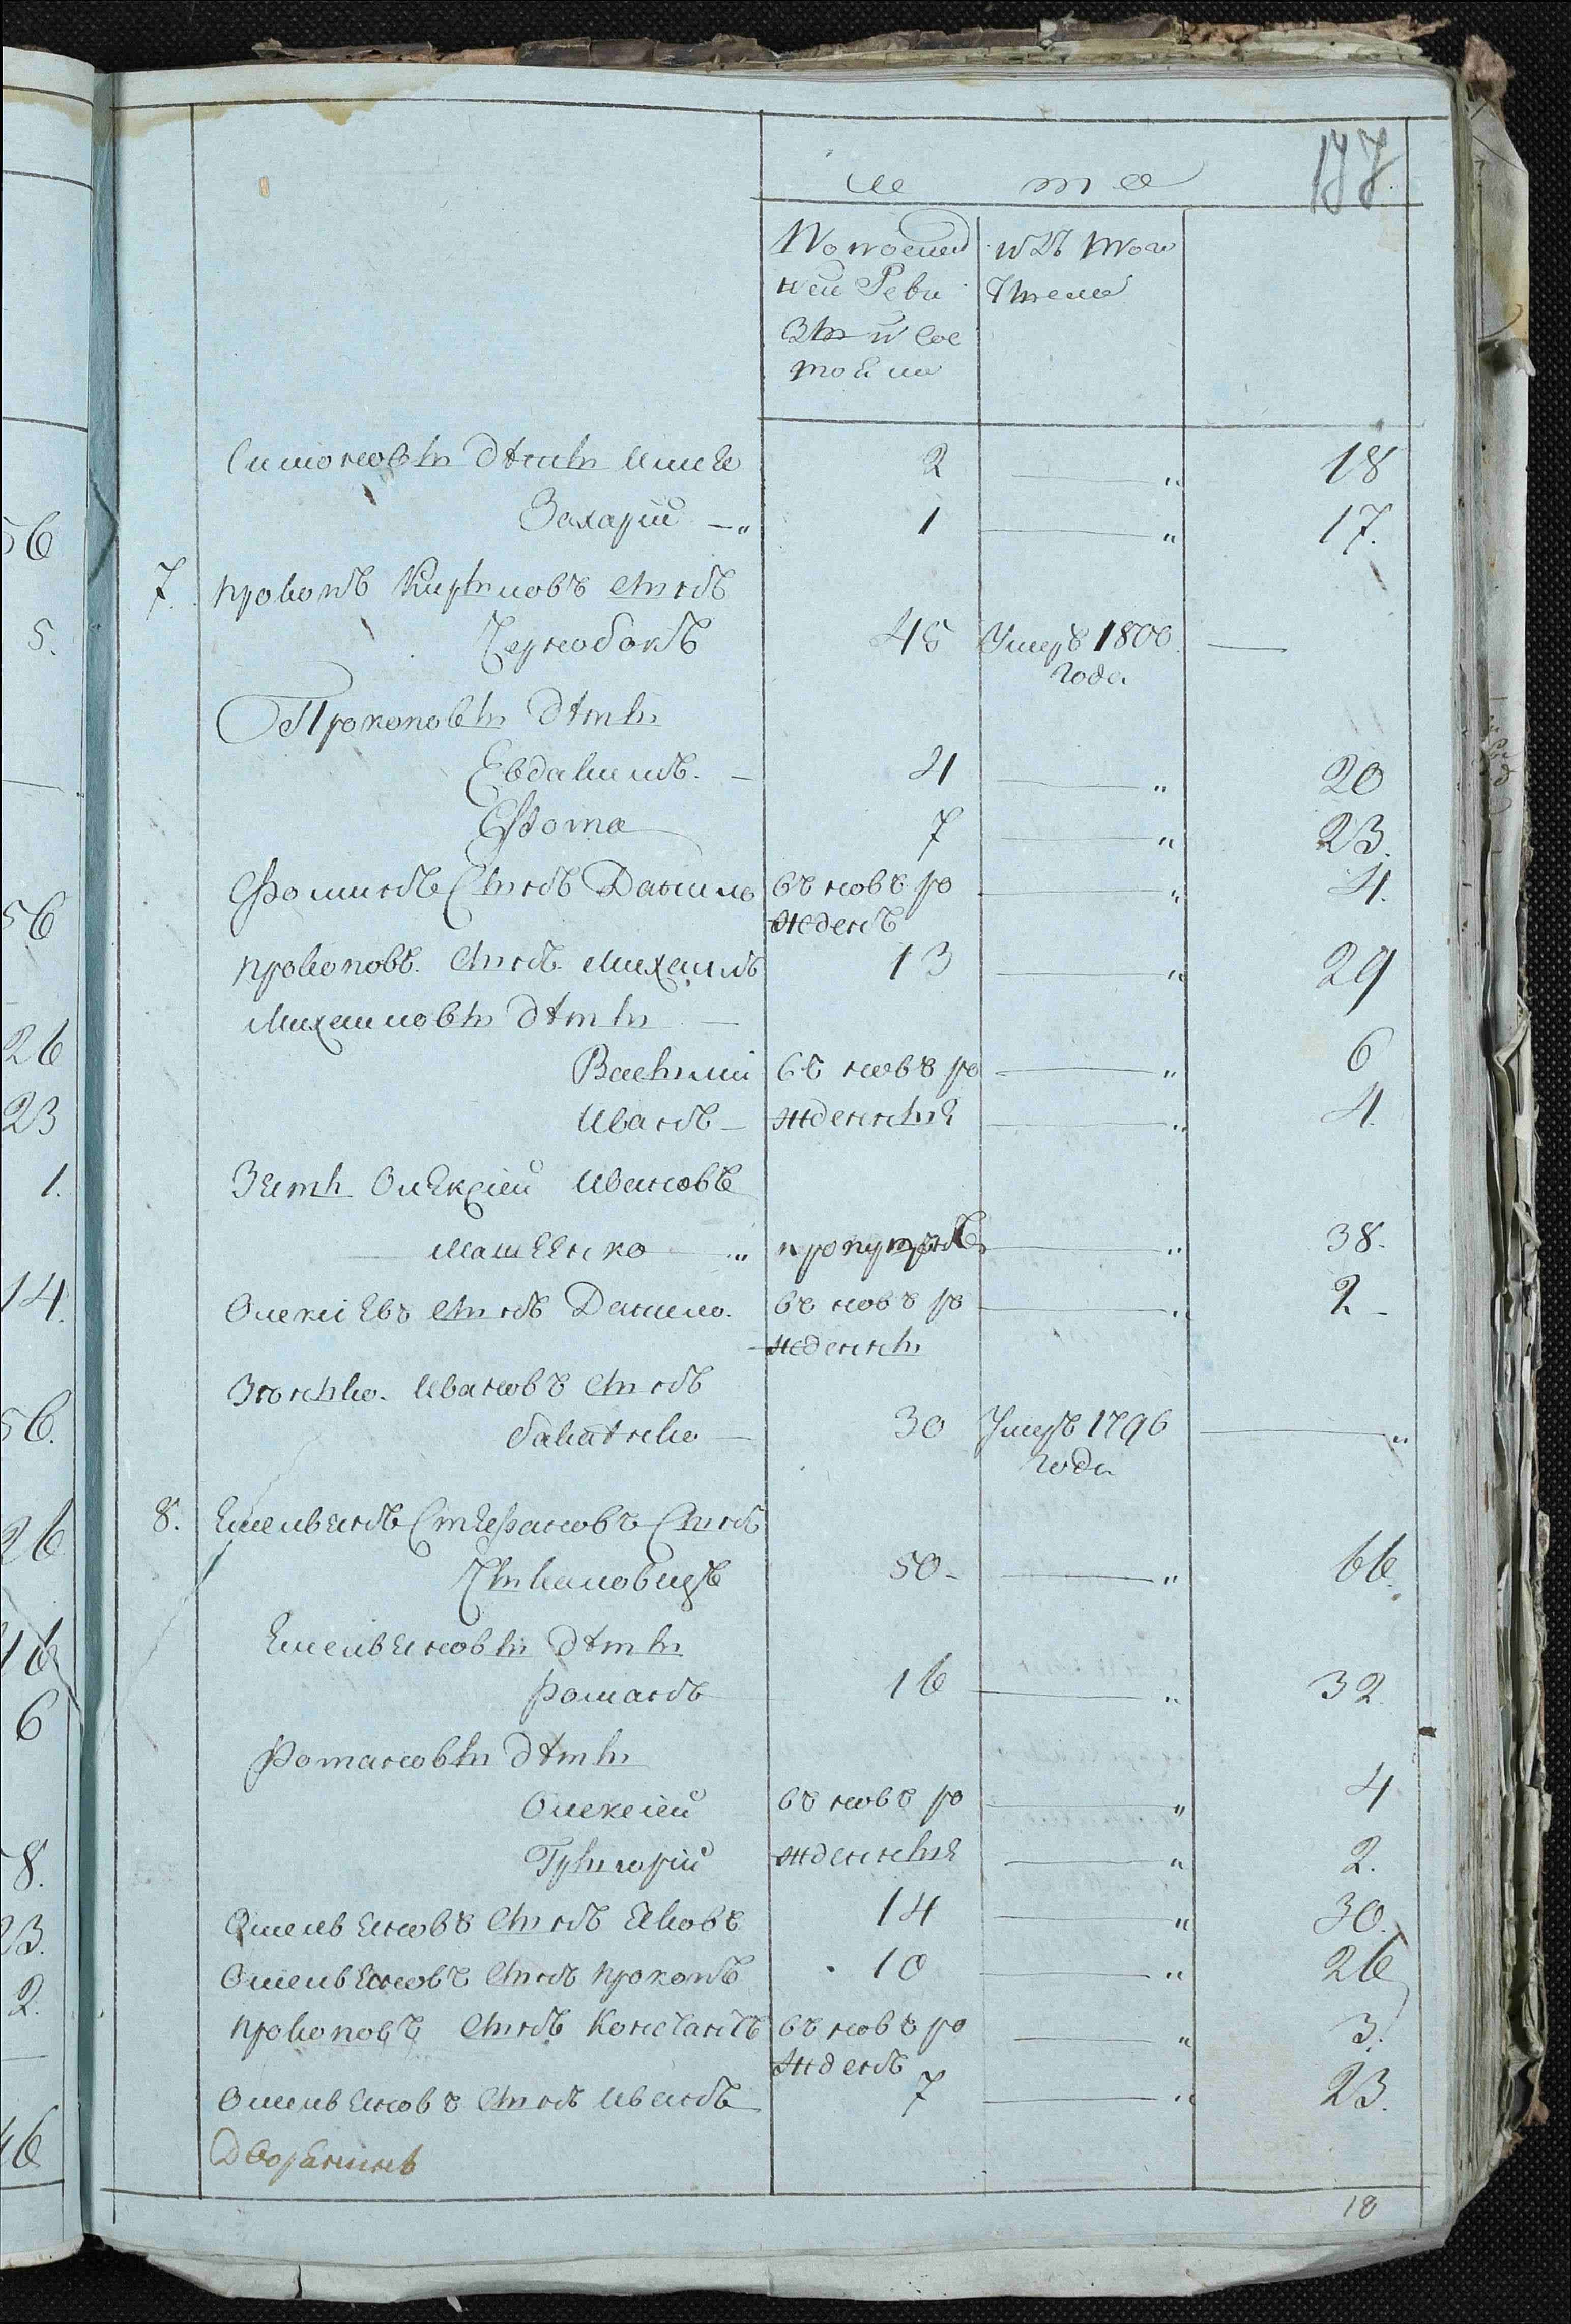 177
л е т а
По последней Ревизыи состояли
изъ того числа
Симоновы дѣты Илия 2 — " 18
Захарий — " 1 — " 17.
7. Прокопъ Кирыловъ сынъ
Чернобокъ 45 Умеръ 1800 года —
Прокоповы дѣты
Евдакимъ. — 4 — " 20
Фома 7 — " 23.
Фоминъ Сынъ Данило въ новъ рожденъ — " 4.
Прокоповъ. сынъ Михаилъ 13 — " 29
Михаиловы дѣты —
Васылий въ новъ ро — " 6
Иванъ — жденные — " 4
Зять Олексией Ивановъ
Машѣнко — " пропущенъ — " 38.
Олексіевъ сынъ Данило. въ новъ рожденны — " 2 —
Зѣнько. Ивановъ сынъ
— 30 Умеръ 1796 года — "
8. Емельянъ Стефановъ Сынъ
50 — — " 66.
Емельяновы дѣты
Романъ 16 — " 32.
Романовы дѣты
Олексией въ новъ ро — " 4
Григорий жденные — " 2.
Омельяновъ сынъ Яковъ 14 — " 30.
Омельяновъ сынъ Прокопъ 10 — " 26
Прокоповъ сынъ Констанtъ въ новъ рожденъ — " 3.
Омельяновъ сынъ Иванъ 7 — " 23.
Дворянинъ
18
56
5.
56
26
23
1.
14.
56.
26
16
6
8.
23.
2.
46